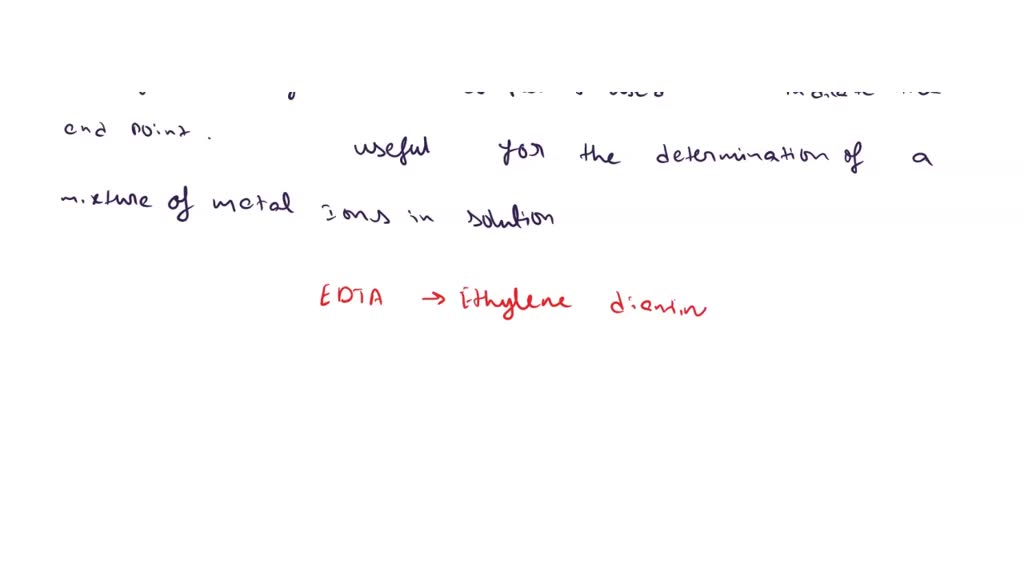 end point.
useful for the determination of a
mixture of metal Ions in solution
EDTA → Ethylene diamin